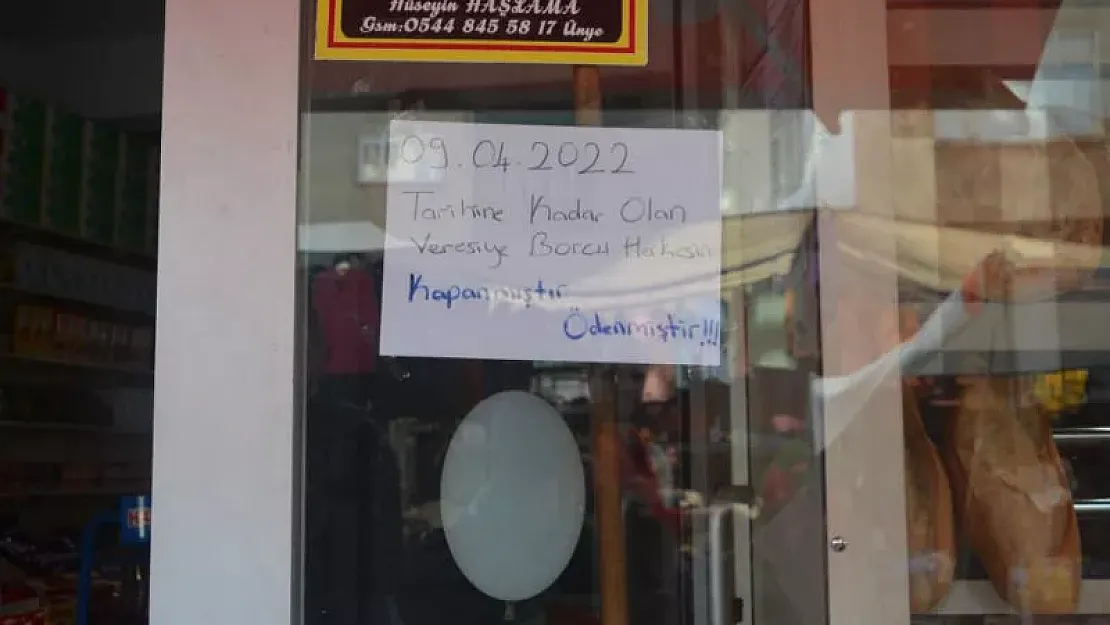 Hüseyin HAŞLAMA
Gsm:0544 845 58 17 Ünye
09.04.2022
Tarihine Kadar Olan
Veresiye Borcu Hakesin
Kapanmıştır
Ödenmiştir!!!